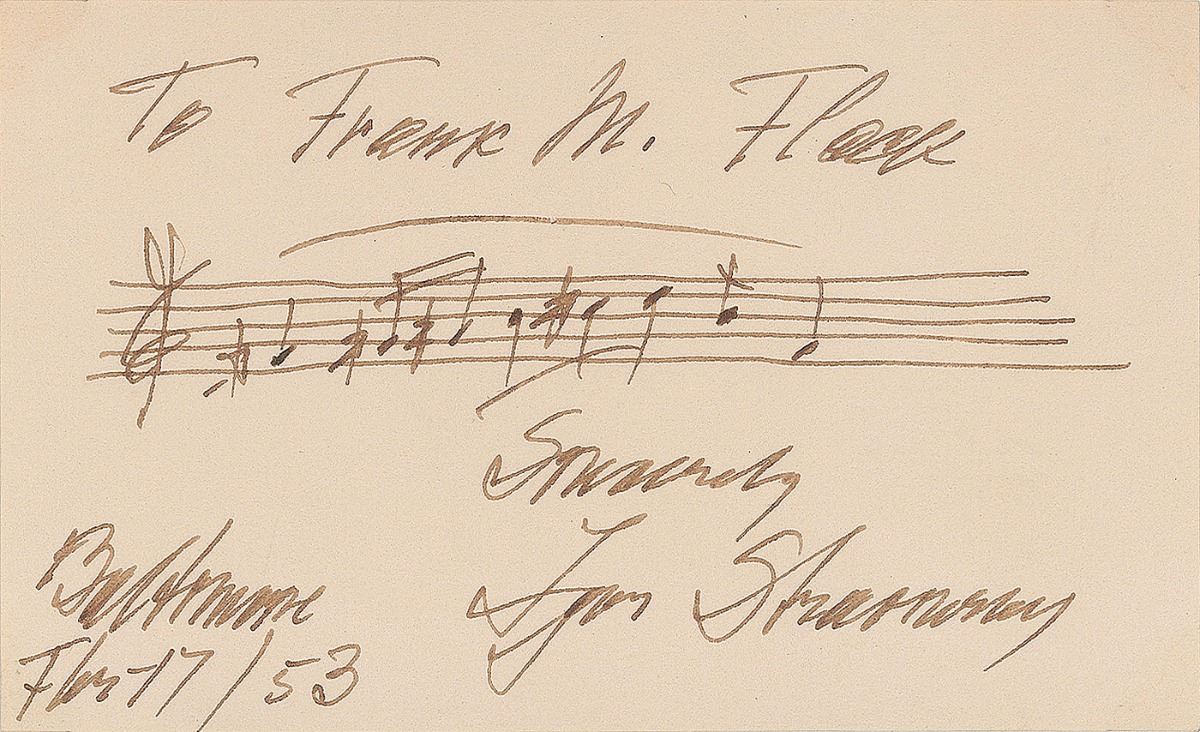 To Frank M. Flack
Sincerely
Igor Stravinsky
Baltimore
Febr 17/53